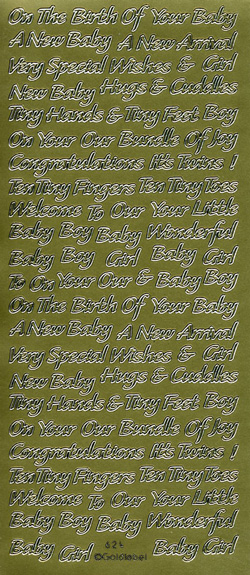 On The Birth Of Your Baby
A New Baby A New Arrival
Very Special Wishes & Girl
New Baby Hugs & Cuddles
Tiny Hands & Tiny Feet Boy
On Your Our Bundle Of Joy
Congratulations It's Twins !
Ten Tiny Fingers Ten Tiny Toes
Welcome To Our Your Little
Baby Boy Baby Wonderful
Baby Boy Girl Baby Girl
To On Your Our & Baby Boy
On The Birth Of Your Baby
A New Baby A New Arrival
Very Special Wishes & Girl
New Baby Hugs & Cuddles
Tiny Hands & Tiny Feet Boy
On Your Our Bundle Of Joy
Congratulations It's Twins !
Ten Tiny Fingers Ten Tiny Toes
Welcome To Our Your Little
Baby Boy Baby Wonderful
Baby Girl Baby Girl
©Goldlabel